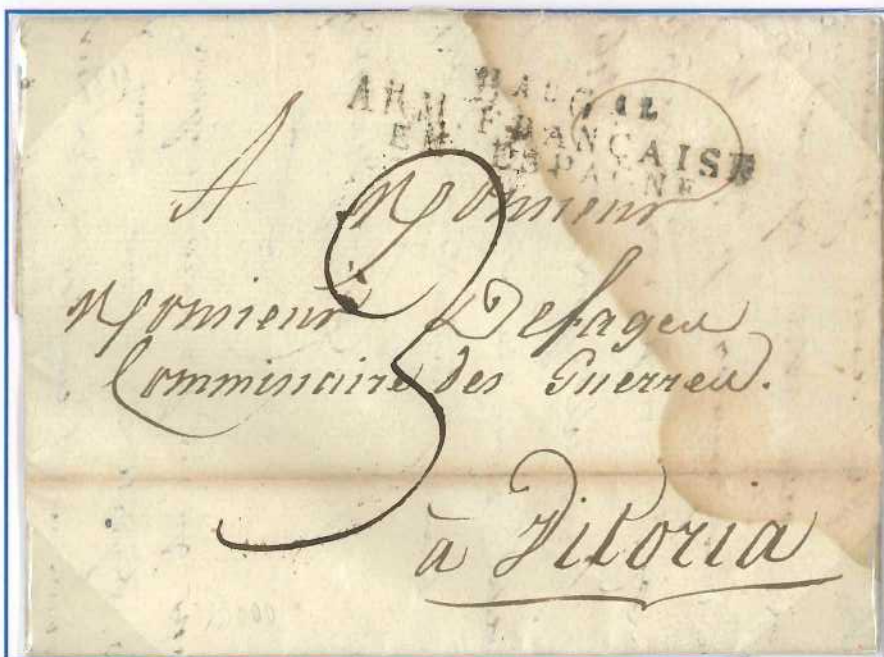 ARM. FRANÇAISE
EN ESPAGNE
A Monsieur
3
Monsieur Defages
Commissaire des Guerres.
à Vitoria